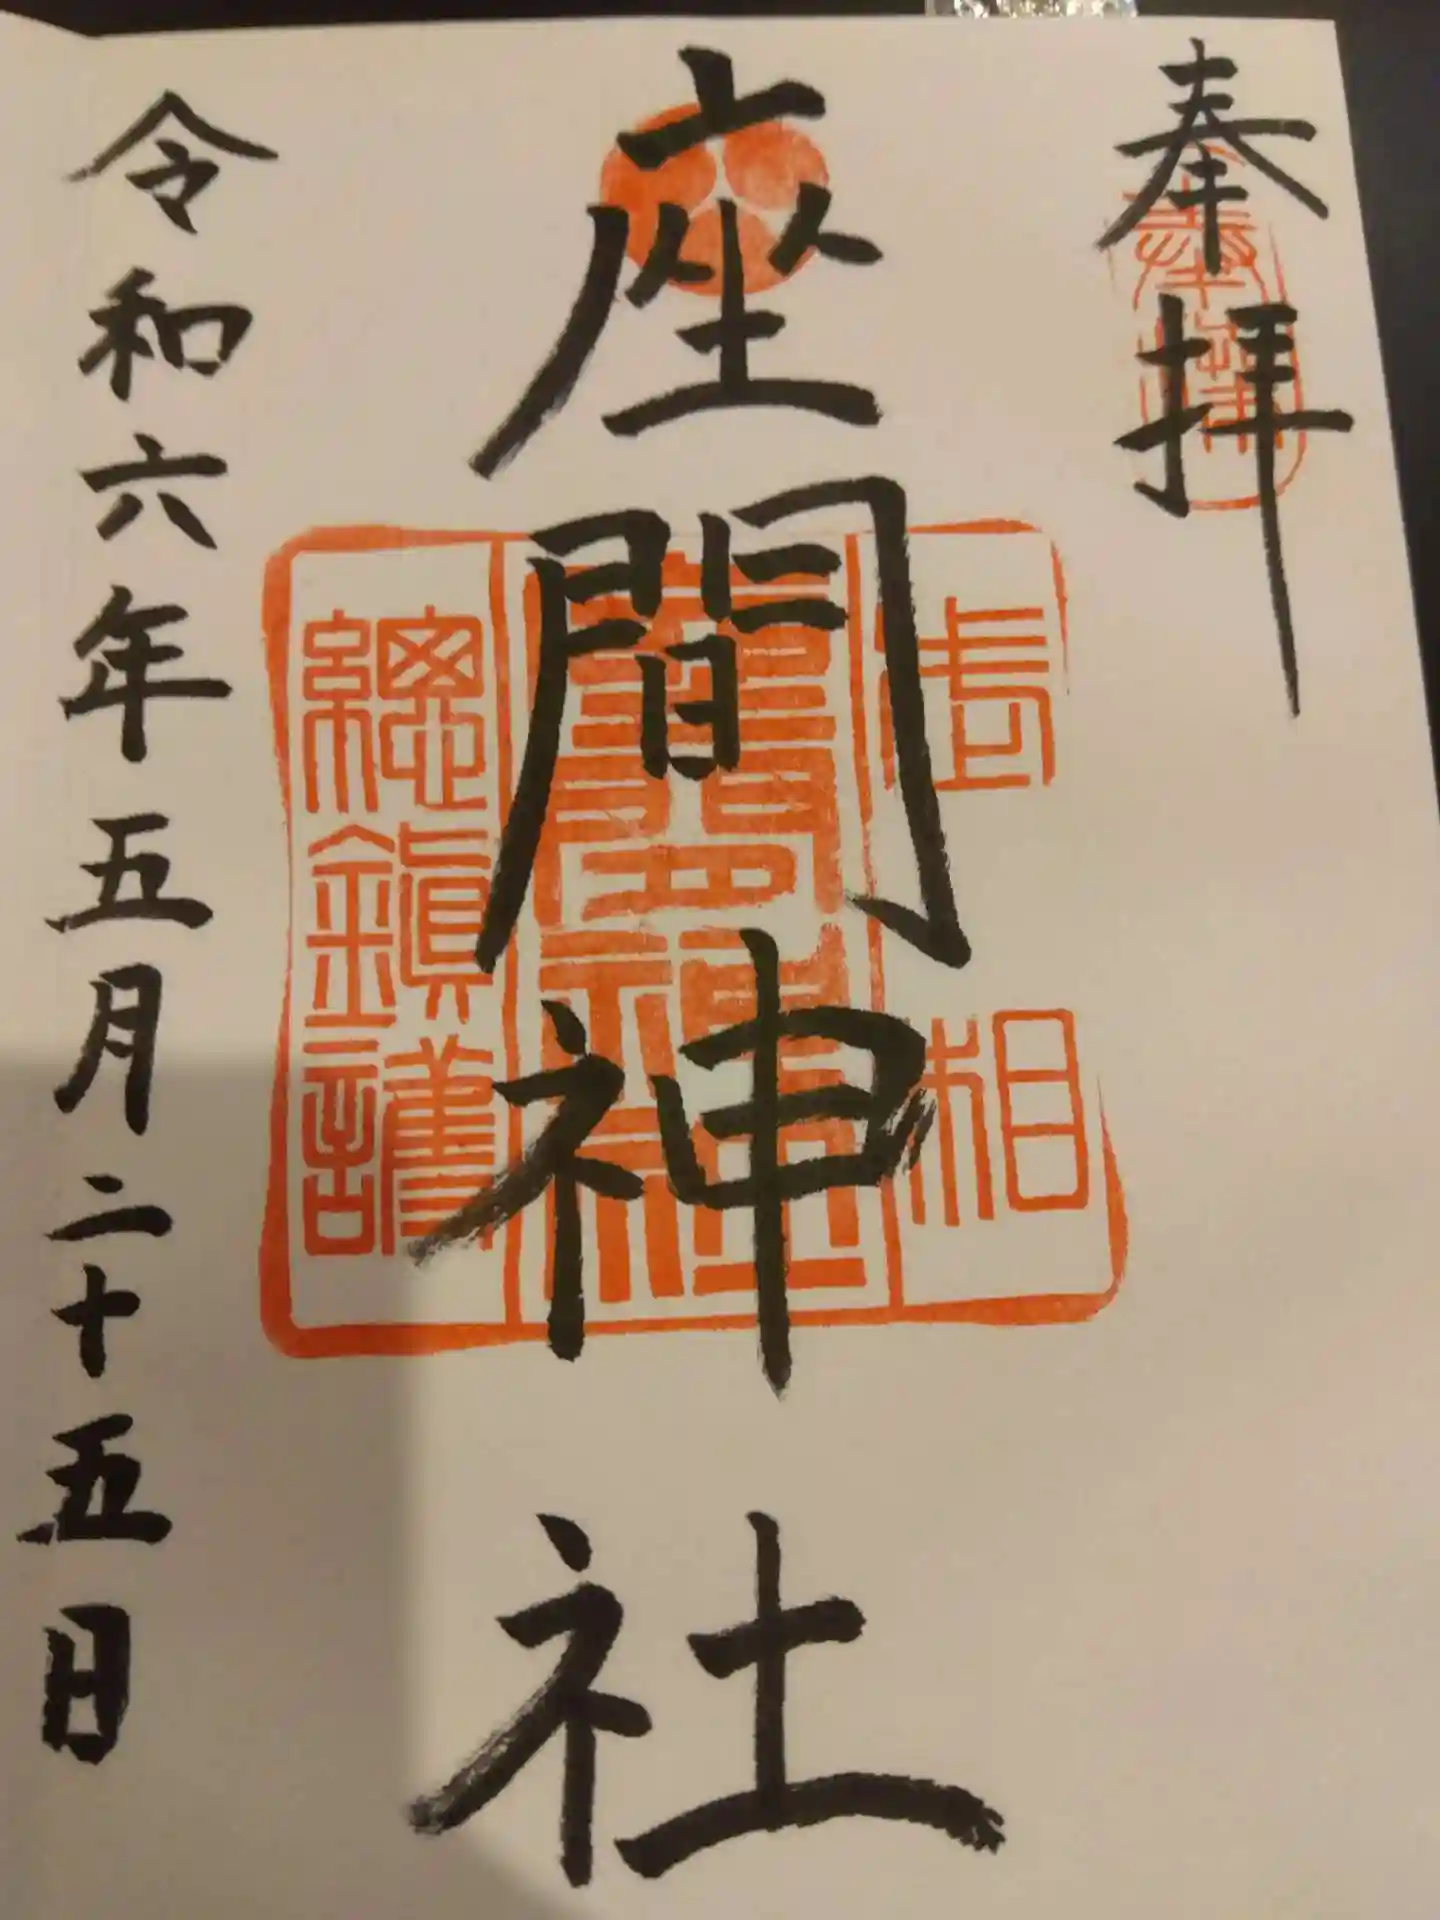 奉拝
奉拝
座間神社
相武
座間神社
總鎮護
令和六年五月二十五日